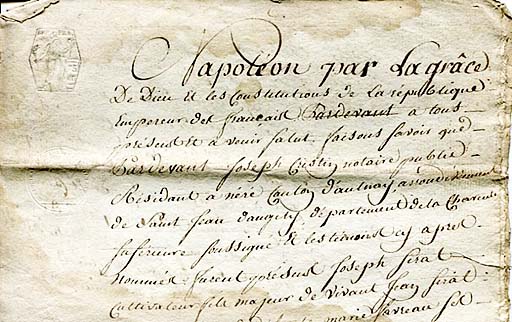 Napoleon par la grâce
De Dieu et les Constitutions de la république
Empereur des français Pardevant a tous
présens et a venir Salut. faisons savoir que
Pardevant Joseph Cristin notaire public
Résidant a néré Canton d'aulnay arrondissement
de Saint Jean d'angely département de la Charente
inferieure soussigné et les témoins cy apres
nommés furent présens Joseph
Cultivateur fils majeur de vivant Jean
marie